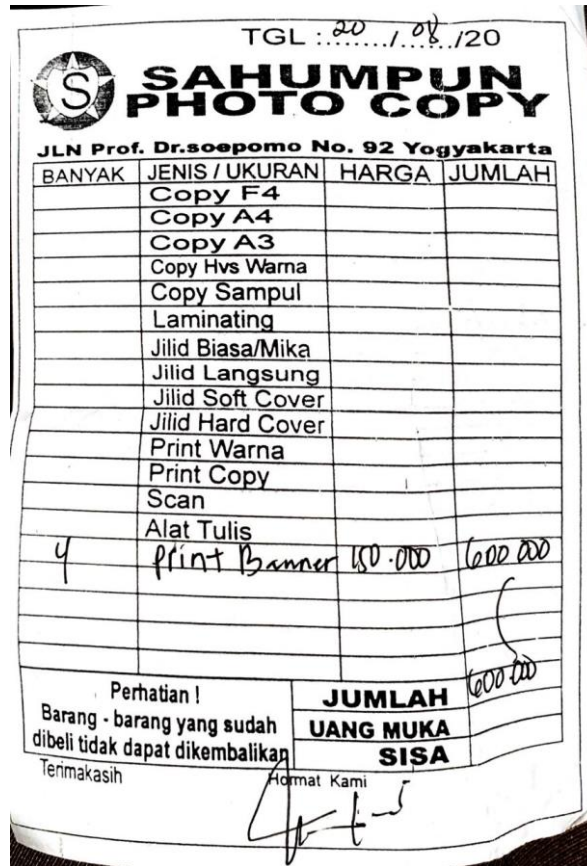 TGL : 20 / 08 /20
S
SAHUMPUN
PHOTO COPY
JLN Prof. Dr.soepomo No. 92 Yogyakarta
BANYAK JENIS / UKURAN HARGA JUMLAH
Copy F4
Copy A4
Copy A3
Copy Hvs Warna
Copy Sampul
Laminating
Jilid Biasa/Mika
Jilid Langsung
Jilid Soft Cover
Jilid Hard Cover
Print Warna
Print Copy
Scan
Alat Tulis
4 print Banner 150.000 600 000
Perhatian ! JUMLAH 600 000
Barang - barang yang sudah UANG MUKA
dibeli tidak dapat dikembalikan SISA
Terimakasih Hormat Kami